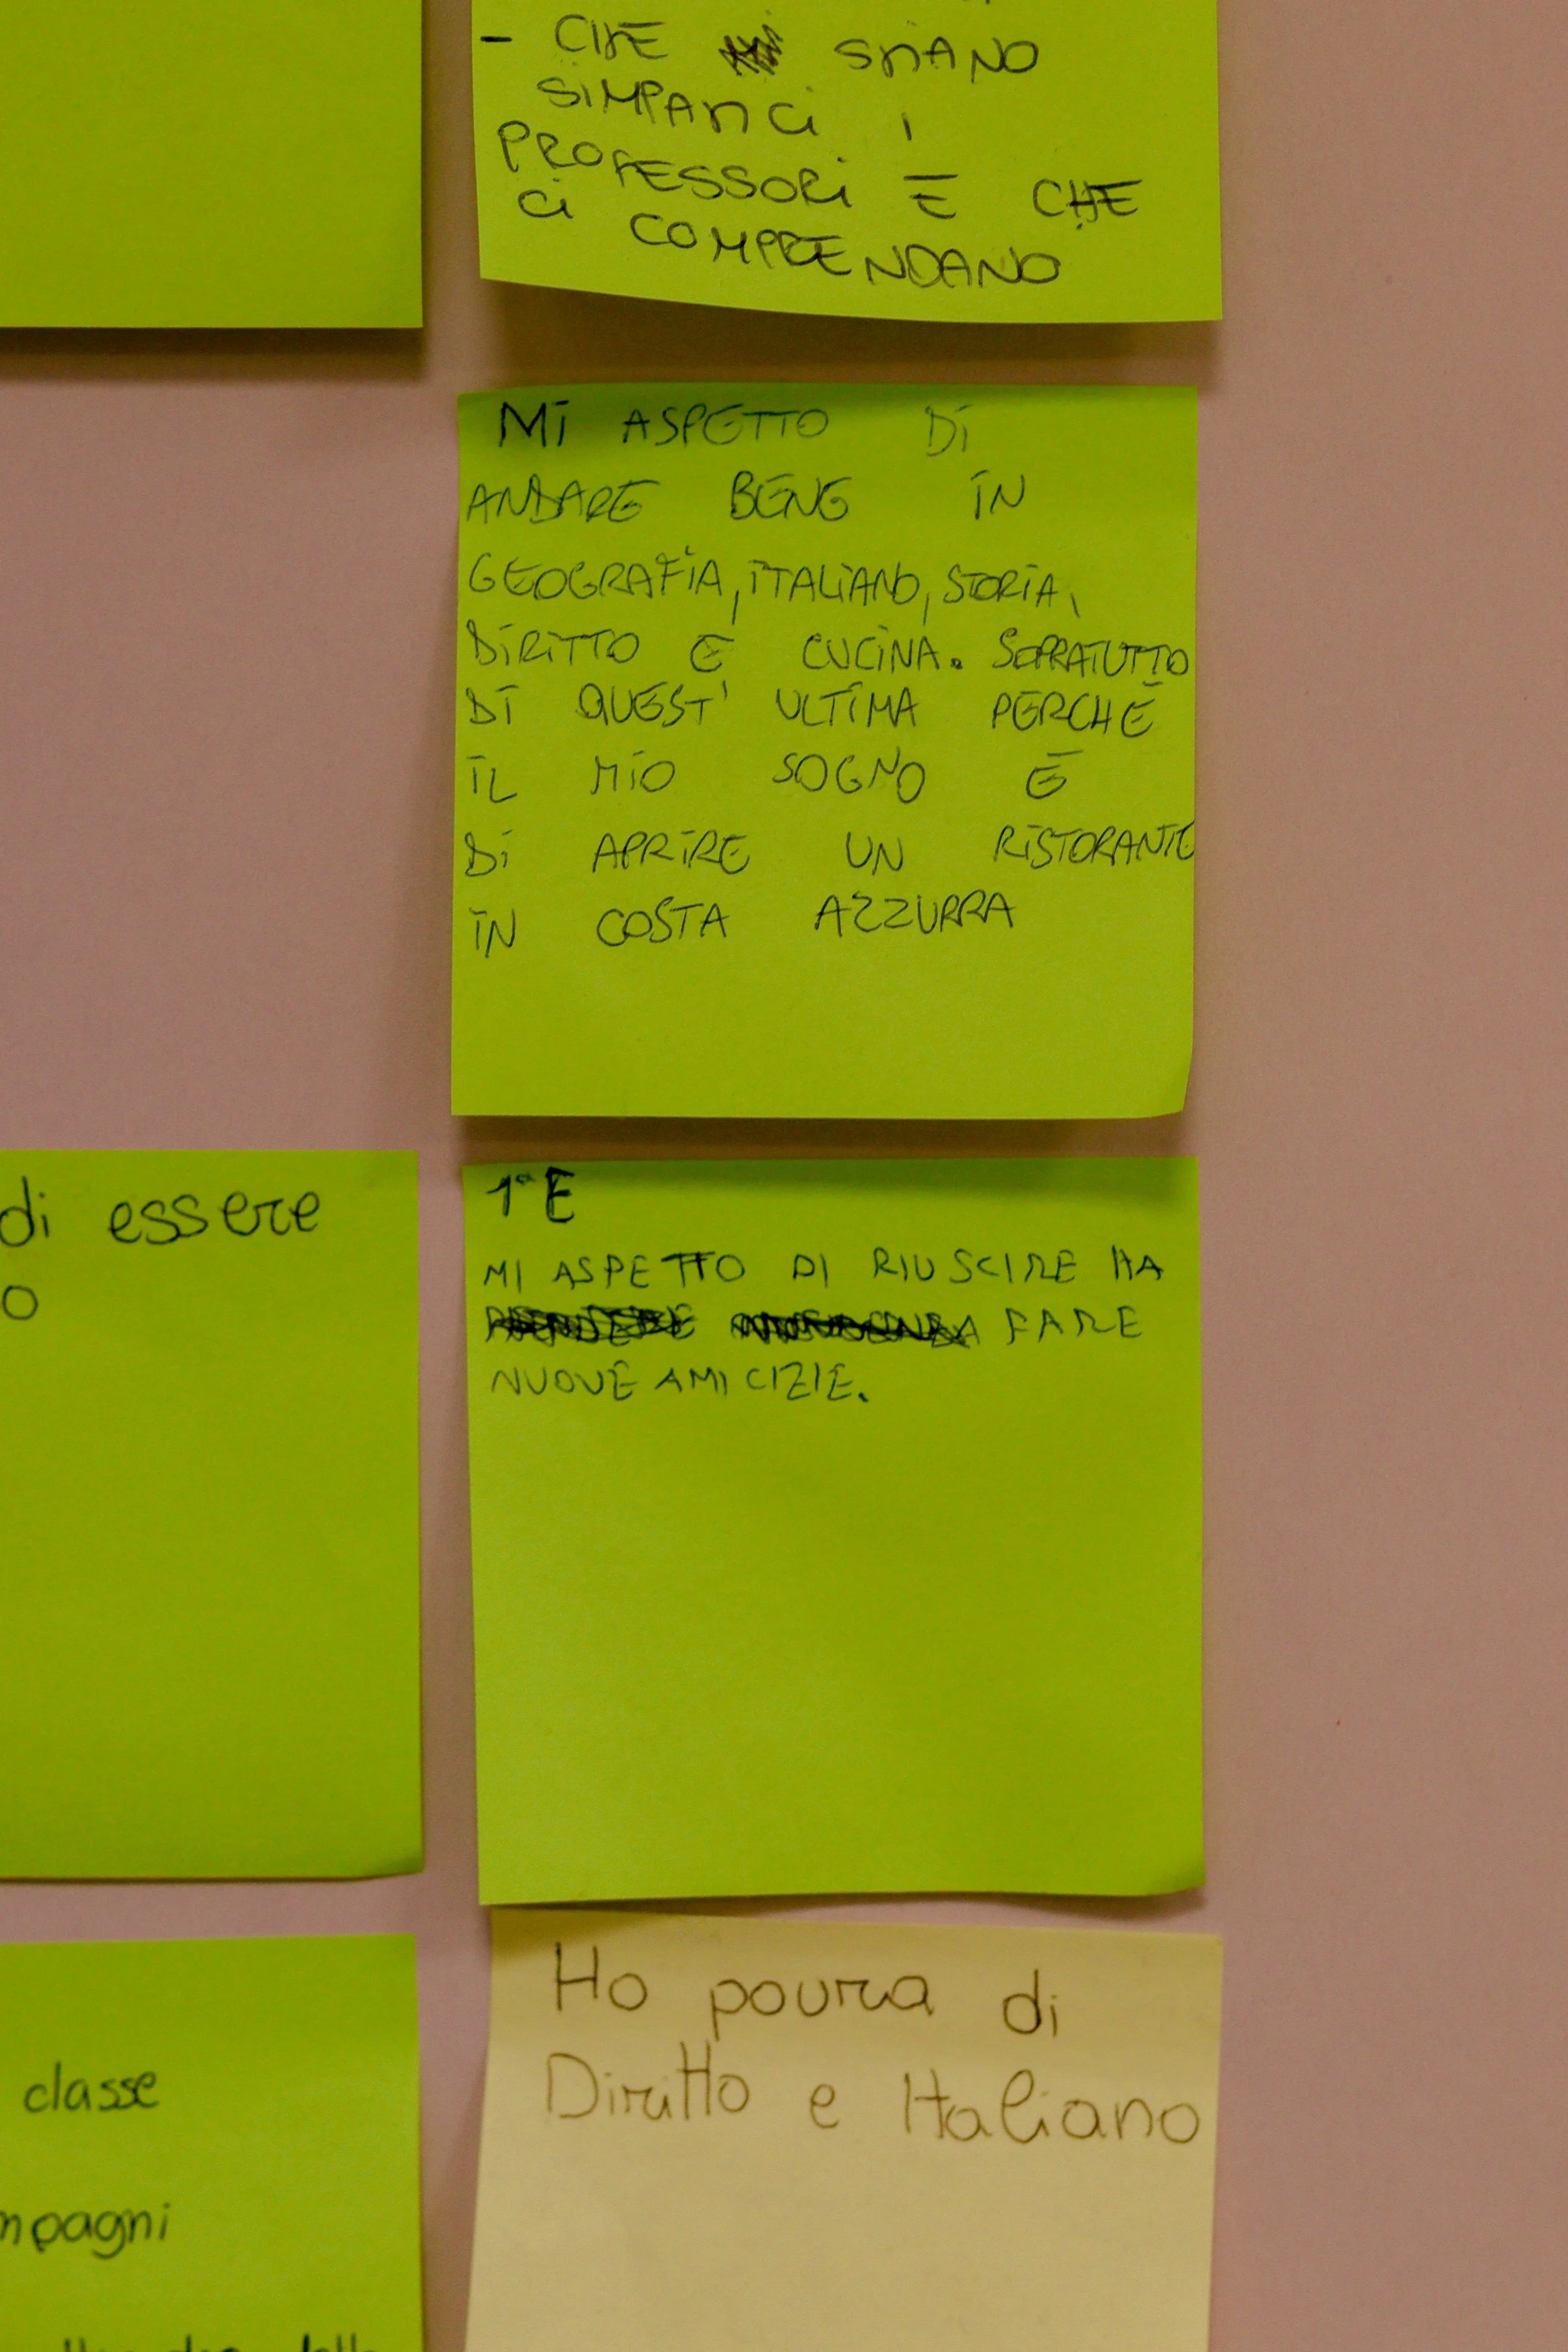 - CHE SIANO
SIMPATICI I
PROFESSORI E CHE
CI COMPRENDANO
MI ASPETTO DI
ANDARE BENE IN
GEOGRAFIA, ITALIANO, STORIA,
DIRITTO E CUCINA. SOPRATUTTO
DI QUEST' ULTIMA PERCHÉ
IL MIO SOGNO É
DI APRIRE UN RISTORANTE
IN COSTA AZZURRA
di essere
o
1ª E
MI ASPETTO DI RIUSCIRE HA
FARE
NUOVE AMICIZIE.
classe
mpagni
Ho paura di
Diritto e Italiano